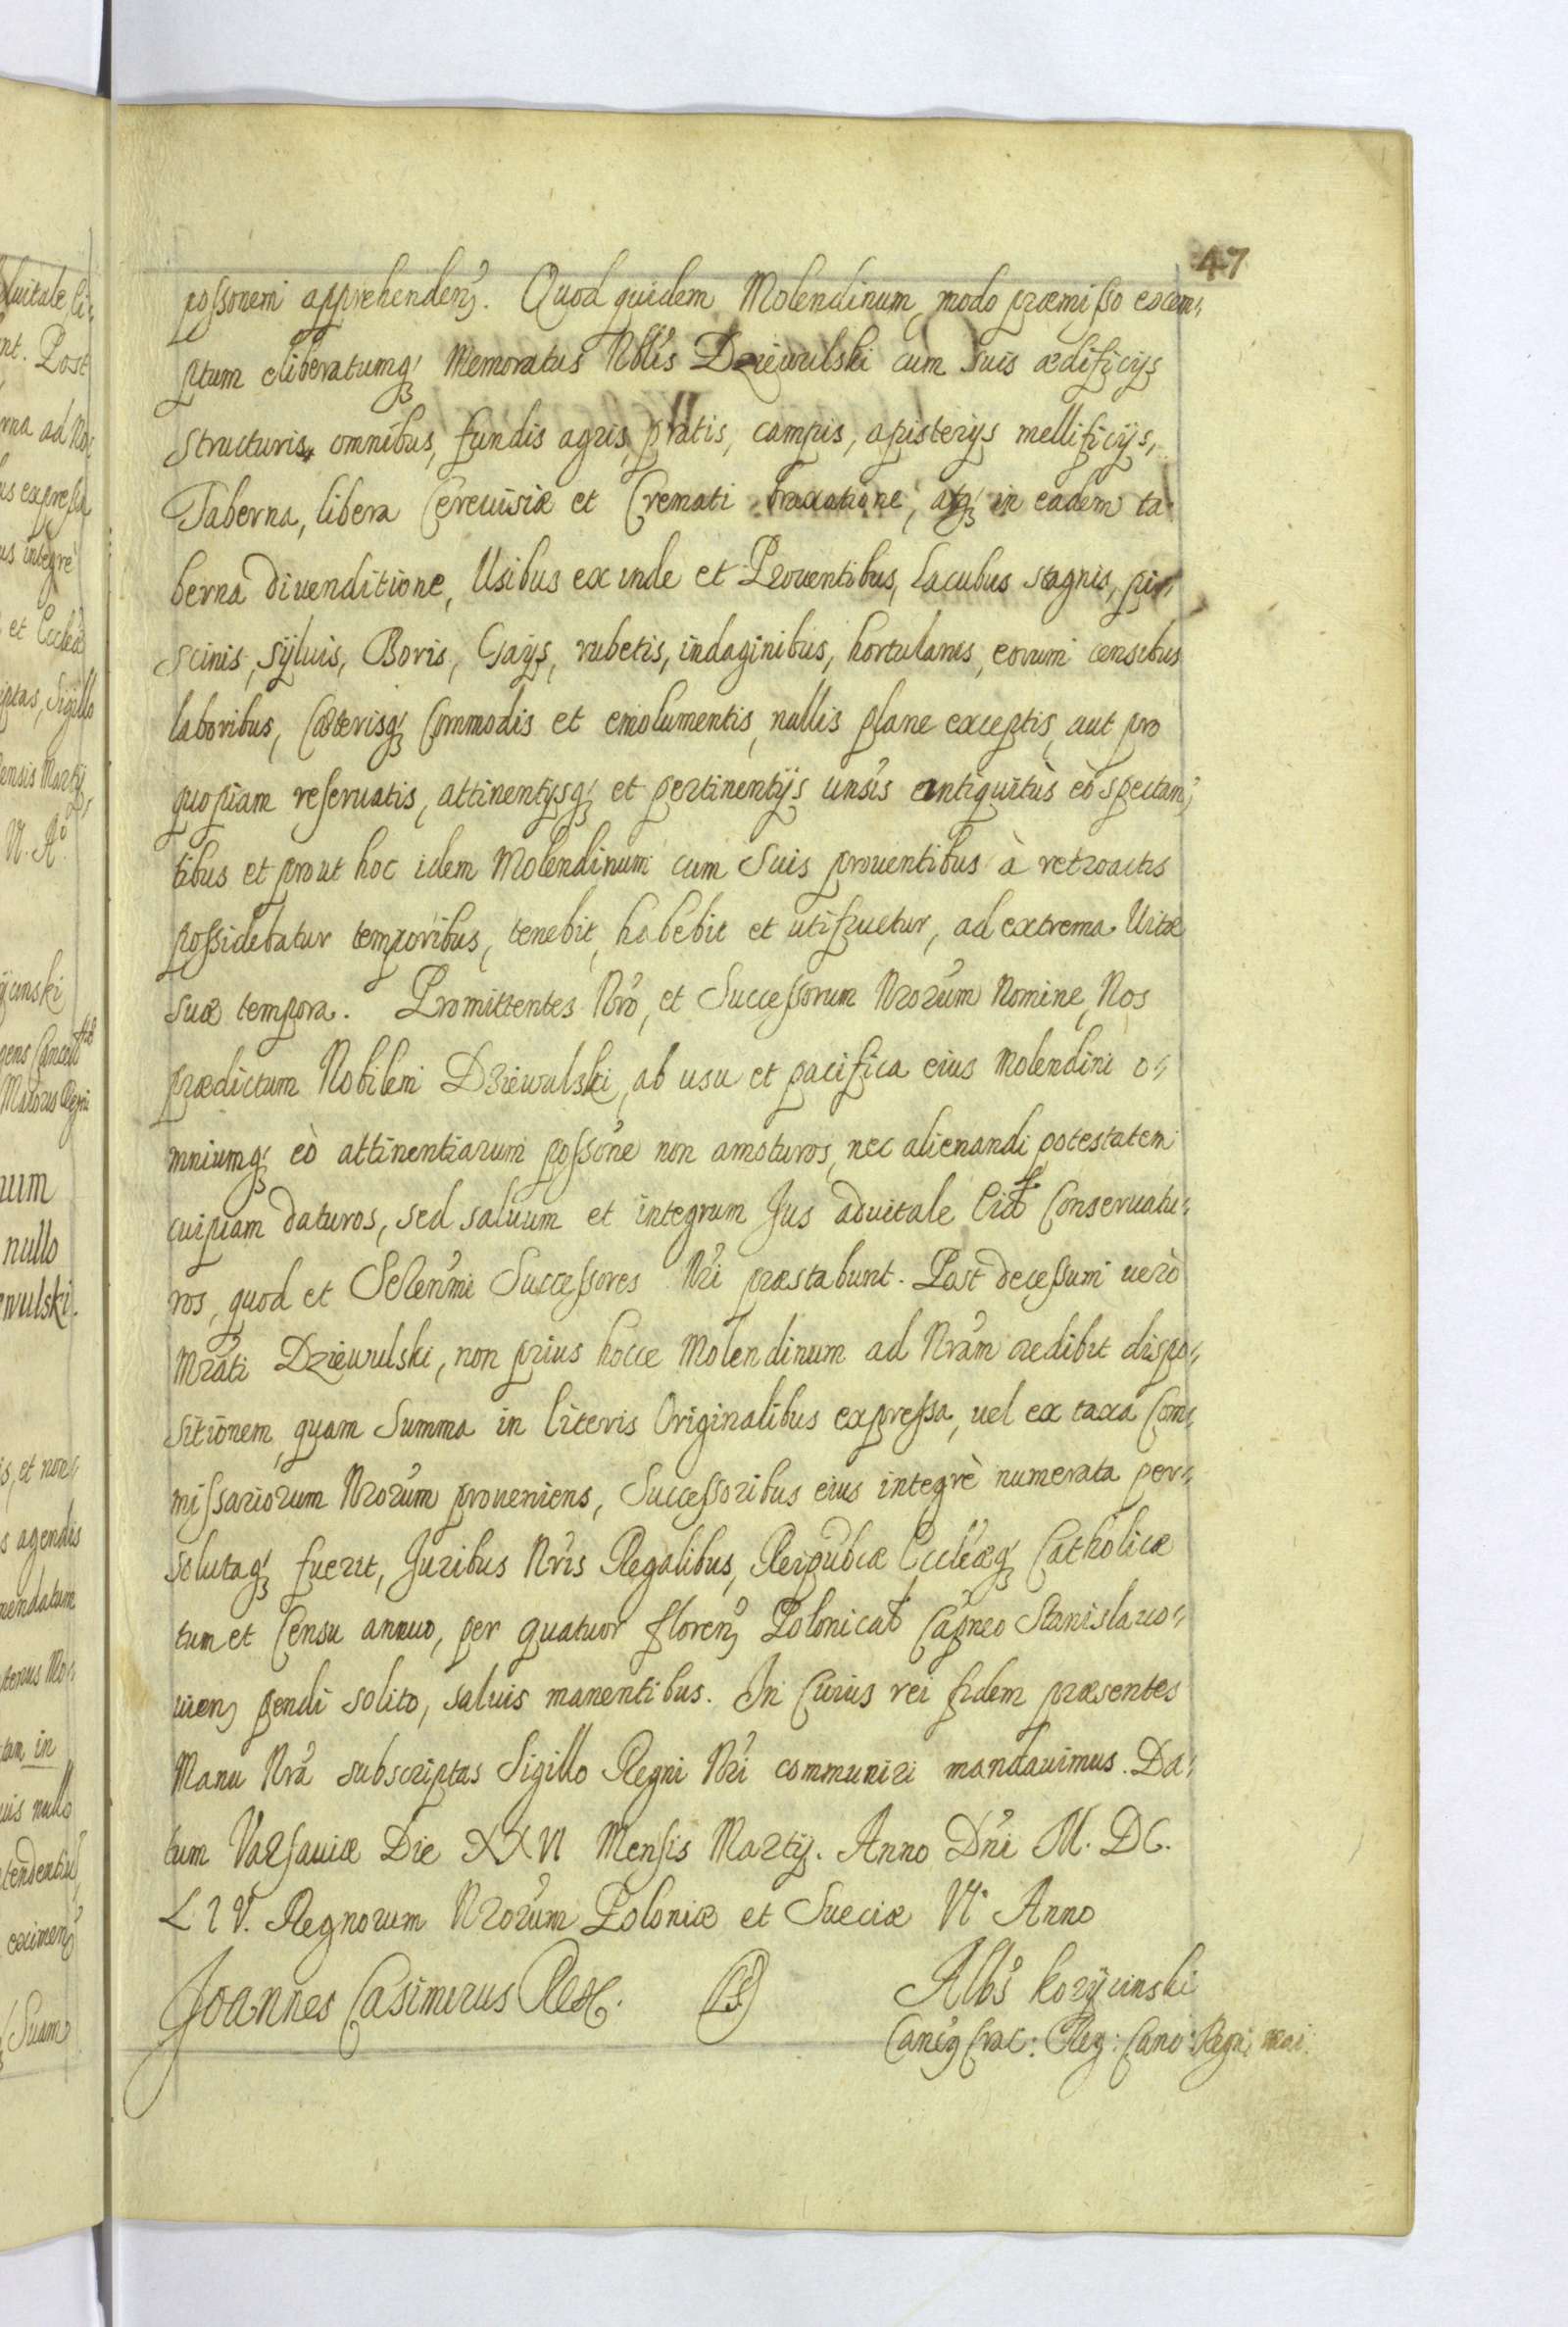 47
possonem apprehenden. Quod quidem Molendinum, modo præmisso exem-
ptum eliberatumq; Memoratus Nobis Dziewulski cum suis ædificijs
structuris omnibus, fundis agris, pratis, campis, apisterijs mellificijs,
Taberna, libera Cereuisiæ et Cremati braxatione, atq; in eadem ta-
berna diuenditione, Usibus ex inde et Prouentibus, Lacubus stagnis, pis-
scinis, syluis, Boris, Gays, rubetis, indaginibus, hortulanis, eorum censibus
laboribus, Cæterisq; Commodis et emolumentis, nullis plane exceptis, aut pro
quopiam reseruatis, attinentijsq; et pertinentijs unsis antiquitùs eò spectan-
tibus et prout hoc idem Molendinum cum Suis prouentibus à retroactis
possidebatur temporibus, tenebit, habebit et utifruetur, ad extrema Uitæ
suæ tempora. Promittentes Nro, et Successorum Nrorum Nomine, Nos
prædictum Nobilem Dziewulski, ab usu et pacifica eius Molendini o-
mniumq; eò attinentiarum possone non amoturos, nec alienandi potestatem
cuipiam daturos, sed saluum et integrum Jus aduitale Eid Conseruatu-
ros, quod et Serenmi Successores Nri præstabunt. Post decessum uerò
Mrati Dziewulski, non prius hocce Molendinum ad Nram redibit dispo-
sitionem, quam Summa in literis Originalibus expressa, uel ex taxa Com-
missariorum Nrorum proueniens, Successoribus eius integrè numerata per-
solutaq; fuerit, Juribus Nris Regalibus, Reipubcæ Eccleæq; Catholicæ
tum et Censu annuo, per quatuor floren Polonical Capneo Stanislao-
uien pendi solito, saluis manentibus. In Cuius rei fidem præsentes
Manu Nra subscriptas Sigillo Regni Nri communiri mandauimus. Da-
tum Varsauiæ Die XXVI Mensis Martij. Anno Dni M. DC.
LIV. Regnorum Nrorum Poloniæ et Sueciæ VI° Anno
Joannes Casimirus Rex. (LS) Albs Korycinski
Crac: Reg: Canc: Regni mai: